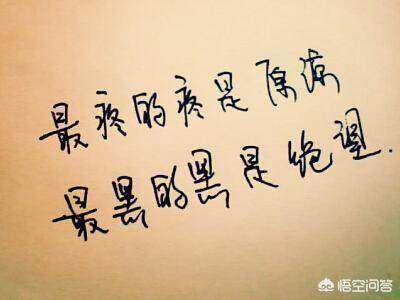 最疼的疼是原谅
最黑的黑是绝望.
悟空问答